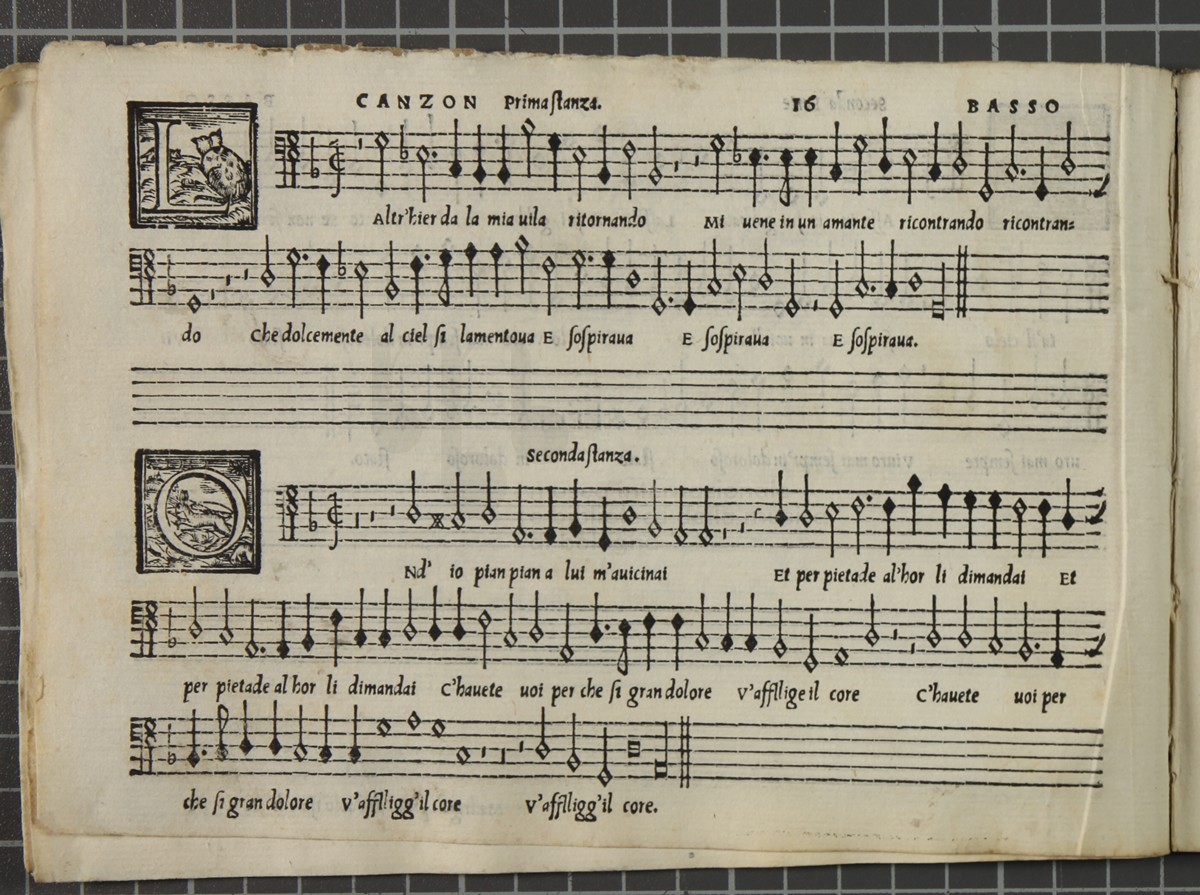 CANZON Prima stanza. 16 BASSO
L Altr'hier da la mia uila ritornando Mi uene in un amante ricontrando ricontran=
do Che dolcemente al ciel si lamentoua E sospiraua E sospiraua E sospiraua.
Seconda stanza.
O Nd' io pian pian a lui m'auicinai Et per pietade al'hor li dimandai Et
per pietade al hor li dimandai C'hauete uoi per che si gran dolore V'affllige il core C'hauete uoi per
che si gran dolore V'afflligg'il core V'afflligg'il core.